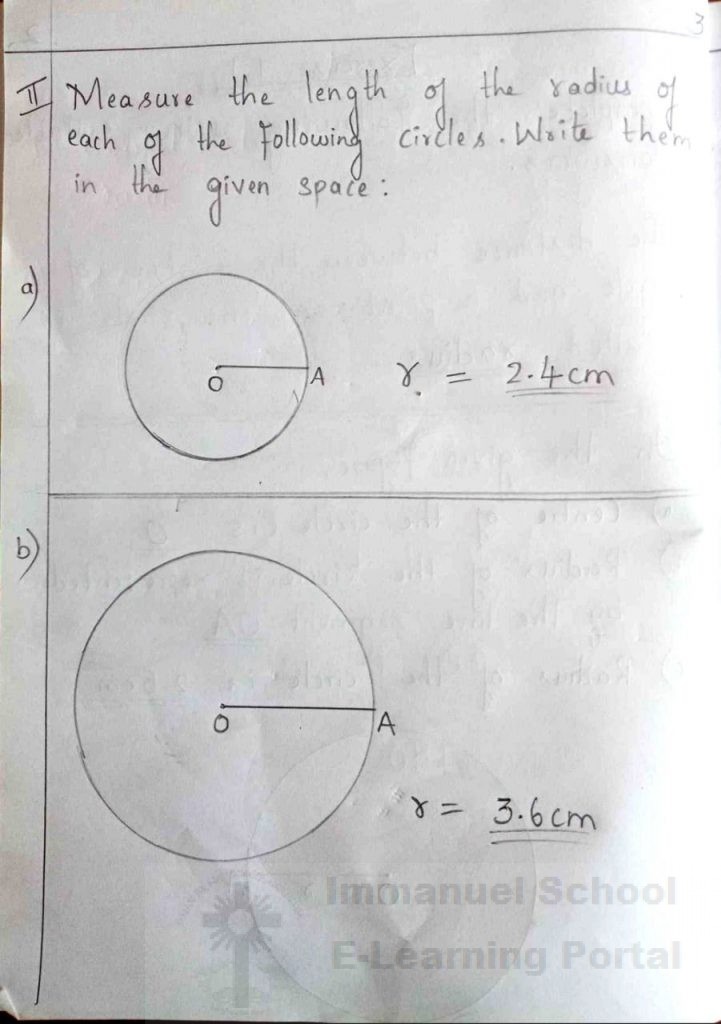 3
II Measure the length of the radius of
each of the following circles. Write them
in the given space:
a)
O A r = 2.4cm
b)
O A
r = 3.6cm
Immanuel School
E-Learning Portal